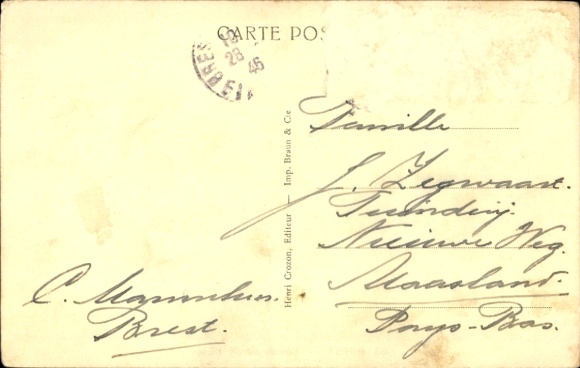 CARTE POS
28
46
BRES
Henri Crozon, Editeur — Imp. Braun & Cie
Famille
J. Zegwaart.
Tuinderij.
Nieuwe Weg.
Maasland.
Pays-Bas.
C.
Brest.